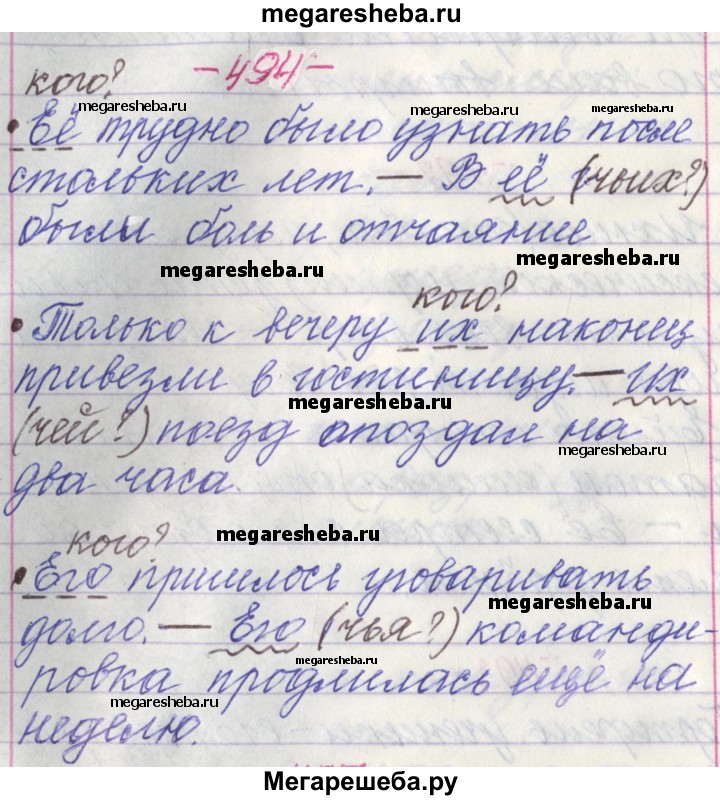 megaresheba.ru
-494-
кого?
megaresheba.ru megaresheba.ru
• Её трудно было узнать после
megaresheba.ru
стольких лет. - В её (чьих?)
были боль и отчаяние
megaresheba.ru megaresheba.ru
кого?
• Только к вечеру их наконец
привезли в гостиницу. - Их
megaresheba.ru
(чей?) поезд опоздал на
megaresheba.ru
два часа.
кого? megaresheba.ru
• Его пришлось уговаривать
megaresheba.ru
долго. - Его (чья?) команди-
megaresheba.ru
ровка продлилась ещё на
megaresheba.ru
неделю.
Мегарешеба.ру